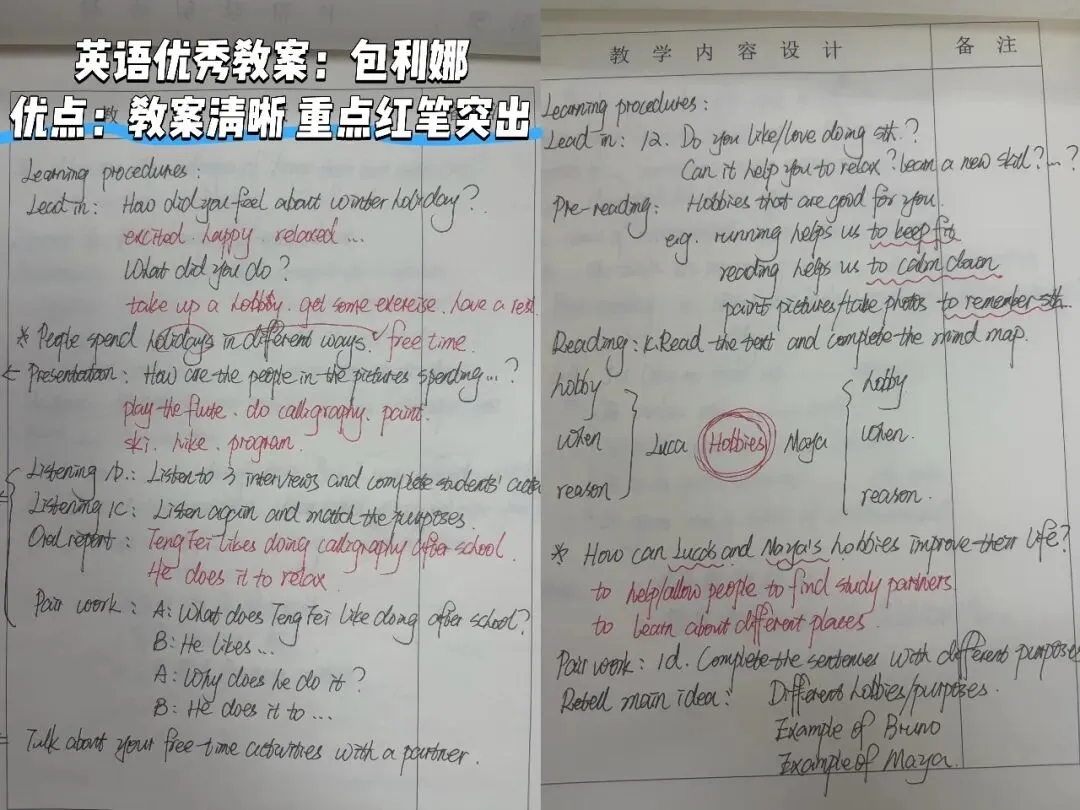 英语优秀教案：包利娜
优点：教案清晰 重点红笔突出
Learning procedures:
Lead in: How did you feel about winter holiday?
excited. happy. relaxed...
What did you do?
take up a hobby. get some exercise. have a rest
* People spend holidays in different ways. free time.
Presentation: How are the people in the pictures spending...?
play the flute. do calligraphy. paint.
ski. hike. program.
Listening 1b.: Listen to 3 interviews and complete students'
Listening 1c: Listen again and match the purposes.
Oral report: Teng Fei likes doing calligraphy after school.
He does it to relax.
Pair work: A: What does Teng Fei like doing after school?
B: He likes...
A: Why does he do it?
B: He does it to...
Talk about your free-time activities with a partner.
教学内容设计 备注
Learning procedures:
Lead in: 1a. Do you like/love doing sth.?
Can it help you to relax? learn a new skill?...?
Pre-reading: Hobbies that are good for you.
e.g. running helps us to keep fit
reading helps us to calm down
paint pictures/take photos to remember sth...
Reading: 1c. Read the text and complete the mind map.
hobby hobby
when Luca Hobbies Maya when.
reason reason.
* How can Luca's and Maya's hobbies improve their life?
to help/allow people to find study partners
to learn about different places.
Pair work: 1d. Complete the sentences with different purposes
Retell main idea: Different hobbies/purposes.
Example of Bruno
Example of Maya.